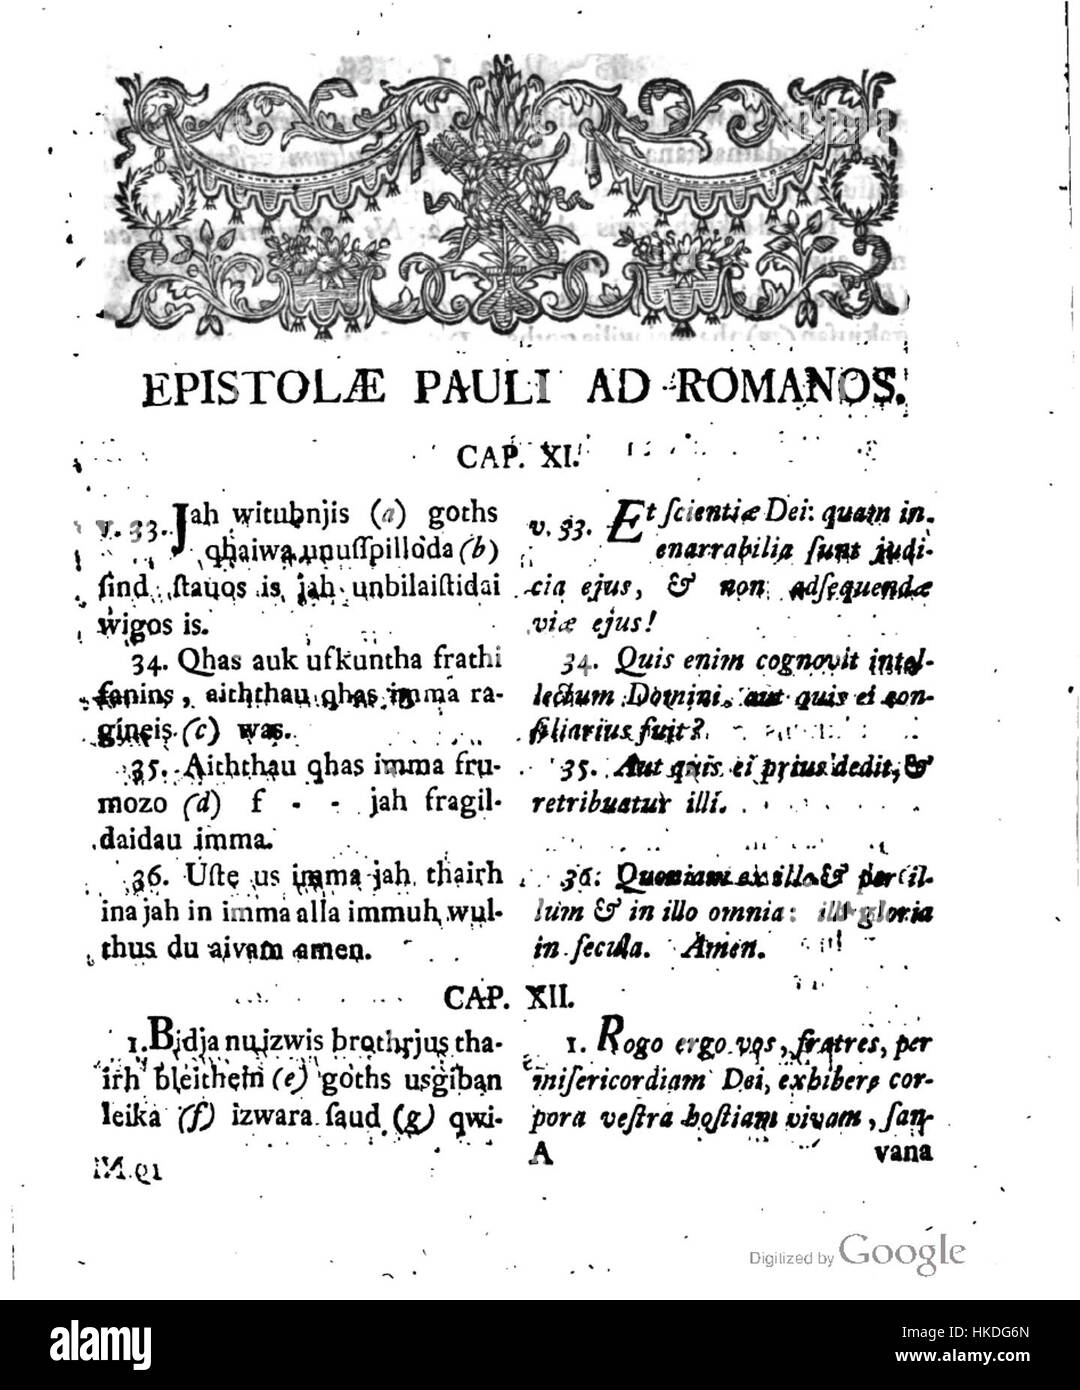 EPISTOLÆ PAULI AD ROMANOS.
CAP. XI.
v. 33. Jah witubnjis (a) goths
qhaiwa unusſpilloda (b)
ſind ſtauos is jah unbilaiſtidai
wigos is.
34. Qhas auk ufkuntha frathi
fanins, aiththau qhas imma ra-
gineis (c) was.
35. Aiththau qhas imma fru-
mozo (d) f - - jah fragil-
daidau imma.
36. Uſte us imma jah thairh
ina jah in imma alla immuh wul-
thus du aivam amen.
v. 33. Et ſcientiæ Dei: quam in-
enarrabilia ſunt judi-
cia ejus, & non adſequendæ
viæ ejus!
34. Quis enim cognovit intel-
lectum Domini, aut quis ei con-
ſiliarius fuit?
35. Aut quis ei prius dedit, &
retribuatur illi.
36. Quoniam ex illo & per il-
lum & in illo omnia: illi gloria
in ſecula. Amen.
CAP. XII.
1. Bidja nu izwis brothrjus tha-
irh bleithein (e) goths usgiban
leika (f) izwara ſaud (g) qwi-
1. Rogo ergo vos, fratres, per
miſericordiam Dei, exhibere cor-
pora veſtra hoſtiam vivam, ſan-
A vana
Digitized by Google
alamy stock photo
HKDG6N
www.alamy.com